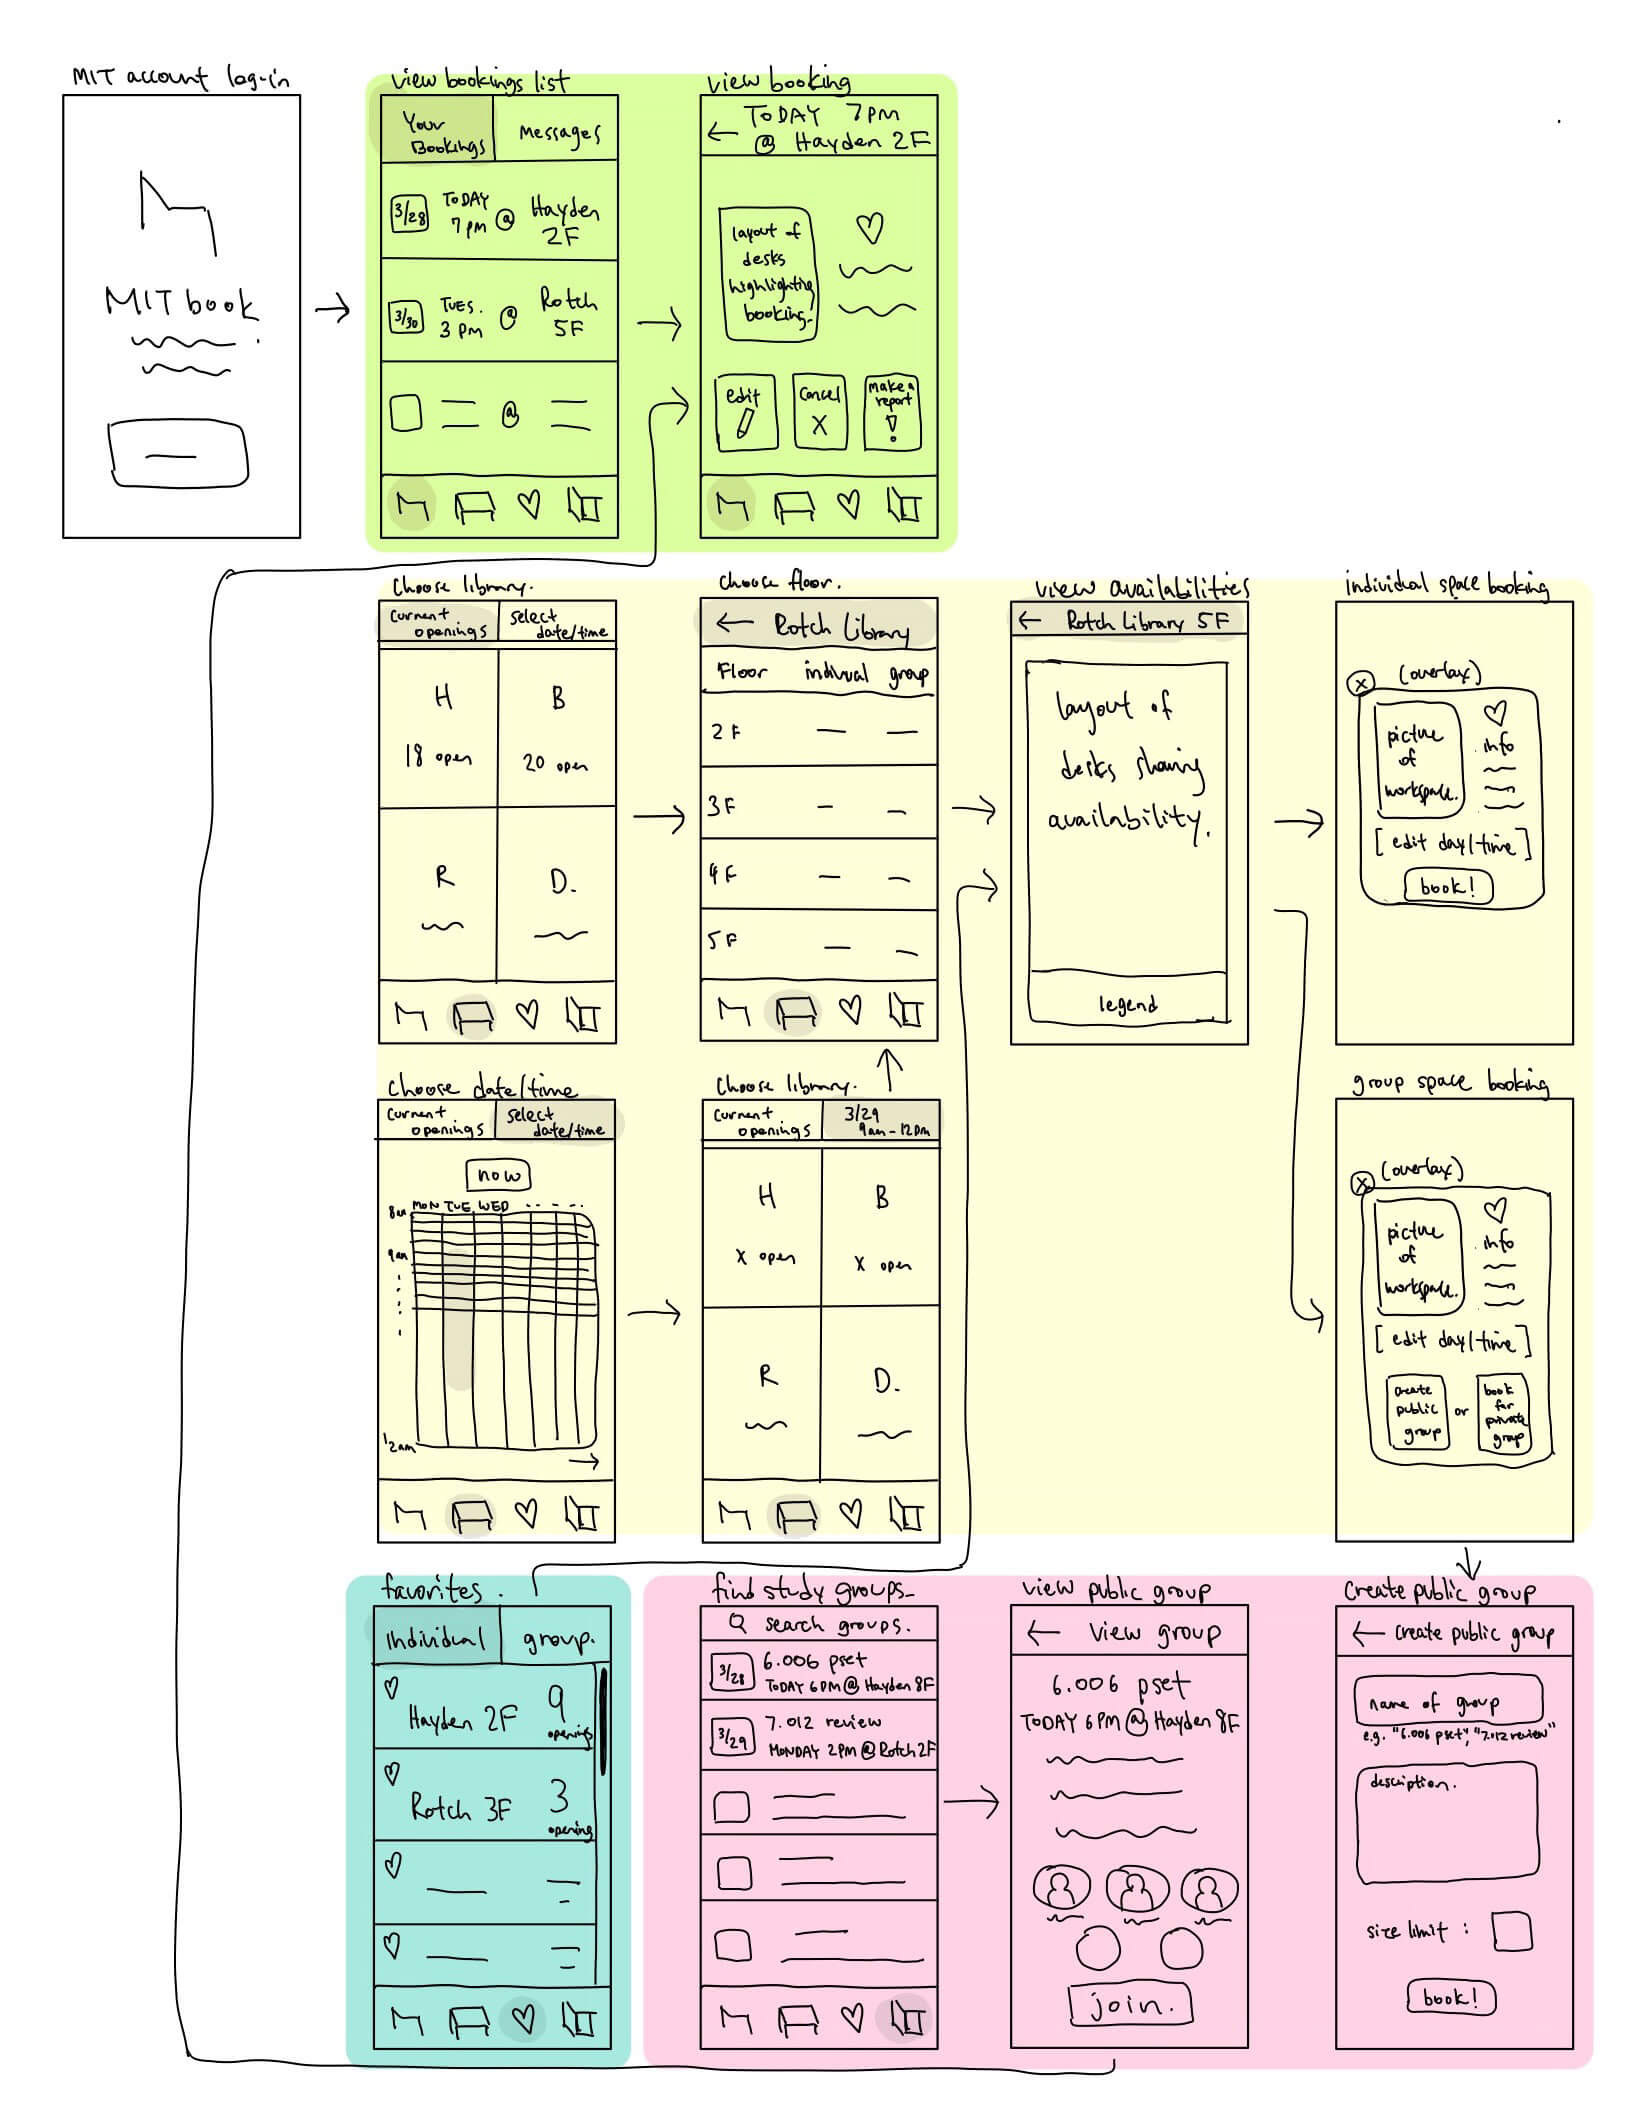 MIT account log-in
MIT book
view bookings list
Your Bookings
Messages
3/28
TODAY 7pm @ Hayden 2F
3/30
TUES. 3 PM @ Rotch 5F
@
view booking
← TODAY 7PM
@ Hayden 2F
layout of
desks
highlighting
booking.
edit
cancel
X
make a
report
!
choose library.
current
openings
select
date/time
H
18 open
B
20 open
R
D.
choose floor.
← Rotch Library
Floor
group
2F
3F
4F
5F
view availabilities
← Rotch Library 5F
layout of
desks sharing
availability.
legend
individual space booking
(overlay)
x
picture
of
workspace.
info
[edit day/time]
book!
choose date/time
current
openings
select
date/time
now
MON TUE WED
8am
9am
12am
choose library.
current
openings
3/29
9am-12pm
H
X open
B
X open
R
D.
group space booking
(overlay)
x
picture
of
workspace.
info
[edit day/time]
create
public
group
or
book
for
private
group
favorites.
individual
group.
Hayden 2F
9
openings
Rotch 3F
3
opening
find study groups
search groups.
3/28
6.006 pset
TODAY 6PM @ Hayden 8F
3/29
7.012 review
MONDAY 2PM @ Rotch 2F
view public group
← View group
6.006 pset
TODAY 6PM @ Hayden 8F
join.
create public group
← create public group
name of group
e.g. "6.006 pset", "7.012 review"
description.
size limit :
book!